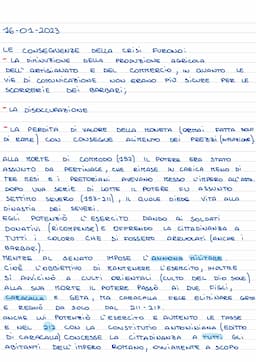 16-01-2023
LE CONSEGUENZE DELLA CRISI FURONO:
- LA DIMINUZIONE DELLA PRODUZIONE AGRICOLA
DELL'ARTIGIANATO E DEL COMMERCIO, IN QUANTO LE
VIE DI COMUNICAZIONE NON ERANO PIÙ SICURE PER LE
SCORRERIE DEI BARBARI;
- LA DISOCCUPAZIONE
- LA PERDITA DI VALORE DELLA MONETA (ORMAI FATTA SOLO
DI RAME) CON CONSEGUE AUMENTO DEI PREZZI (INFLAZIONE).
ALLA MORTE DI COMMODO (192) IL POTERE ERA STATO
ASSUNTO DA PERTINACE, CHE RIMASE IN CARICA MENO DI
TRE MESI E I PRETORIANI AVEVANO MESSO L'IMPERO ALL'ASTA.
DOPO UNA SERIE DI LOTTE IL POTERE FU ASSUNTO
SETTIMO SEVERO (193-211), IL QUALE DIEDE VITA ALLA
DINASTIA DEI SEVERI.
EGLI POTENZIÒ L'ESERCITO DANDO AI SOLDATI
DONATIVI (RICOMPENSE) E OFFRENDO LA CITTADINANZA A
TUTTI I COLORO CHE SI FOSSERO ARRUOLATI (ANCHE I
BARBARI).
MENTRE AL SENATO IMPOSE L'ANNONA MILITARE
CIOÈ L'OBIETTIVO DI MANTENERE L'ESERCITO, INOLTRE
SI AVVICINÒ A CULTI ORIENTALI (CULTO DEL DIO SOLE).
ALLA SUA MORTE IL POTERE PASSÒ AI DUE FIGLI,
CARACALLA E GETA, MA CARACALLA FECE ELIMINARE GETA
DA REGNÒ DA SOLO 211-217.
ANCHE LUI POTENZIÒ L'ESERCITO E AUMENTÒ LE TASSE
E NEL 212 CON LA CONSTITUTIO ANTONINIANA (EDITTO
DI CARACALLA) CONCESSE LA CITTADINANZA A TUTTI GLI
ABITANTI DELL'IMPERO ROMANO, OVVIAMENTE A SCOPO